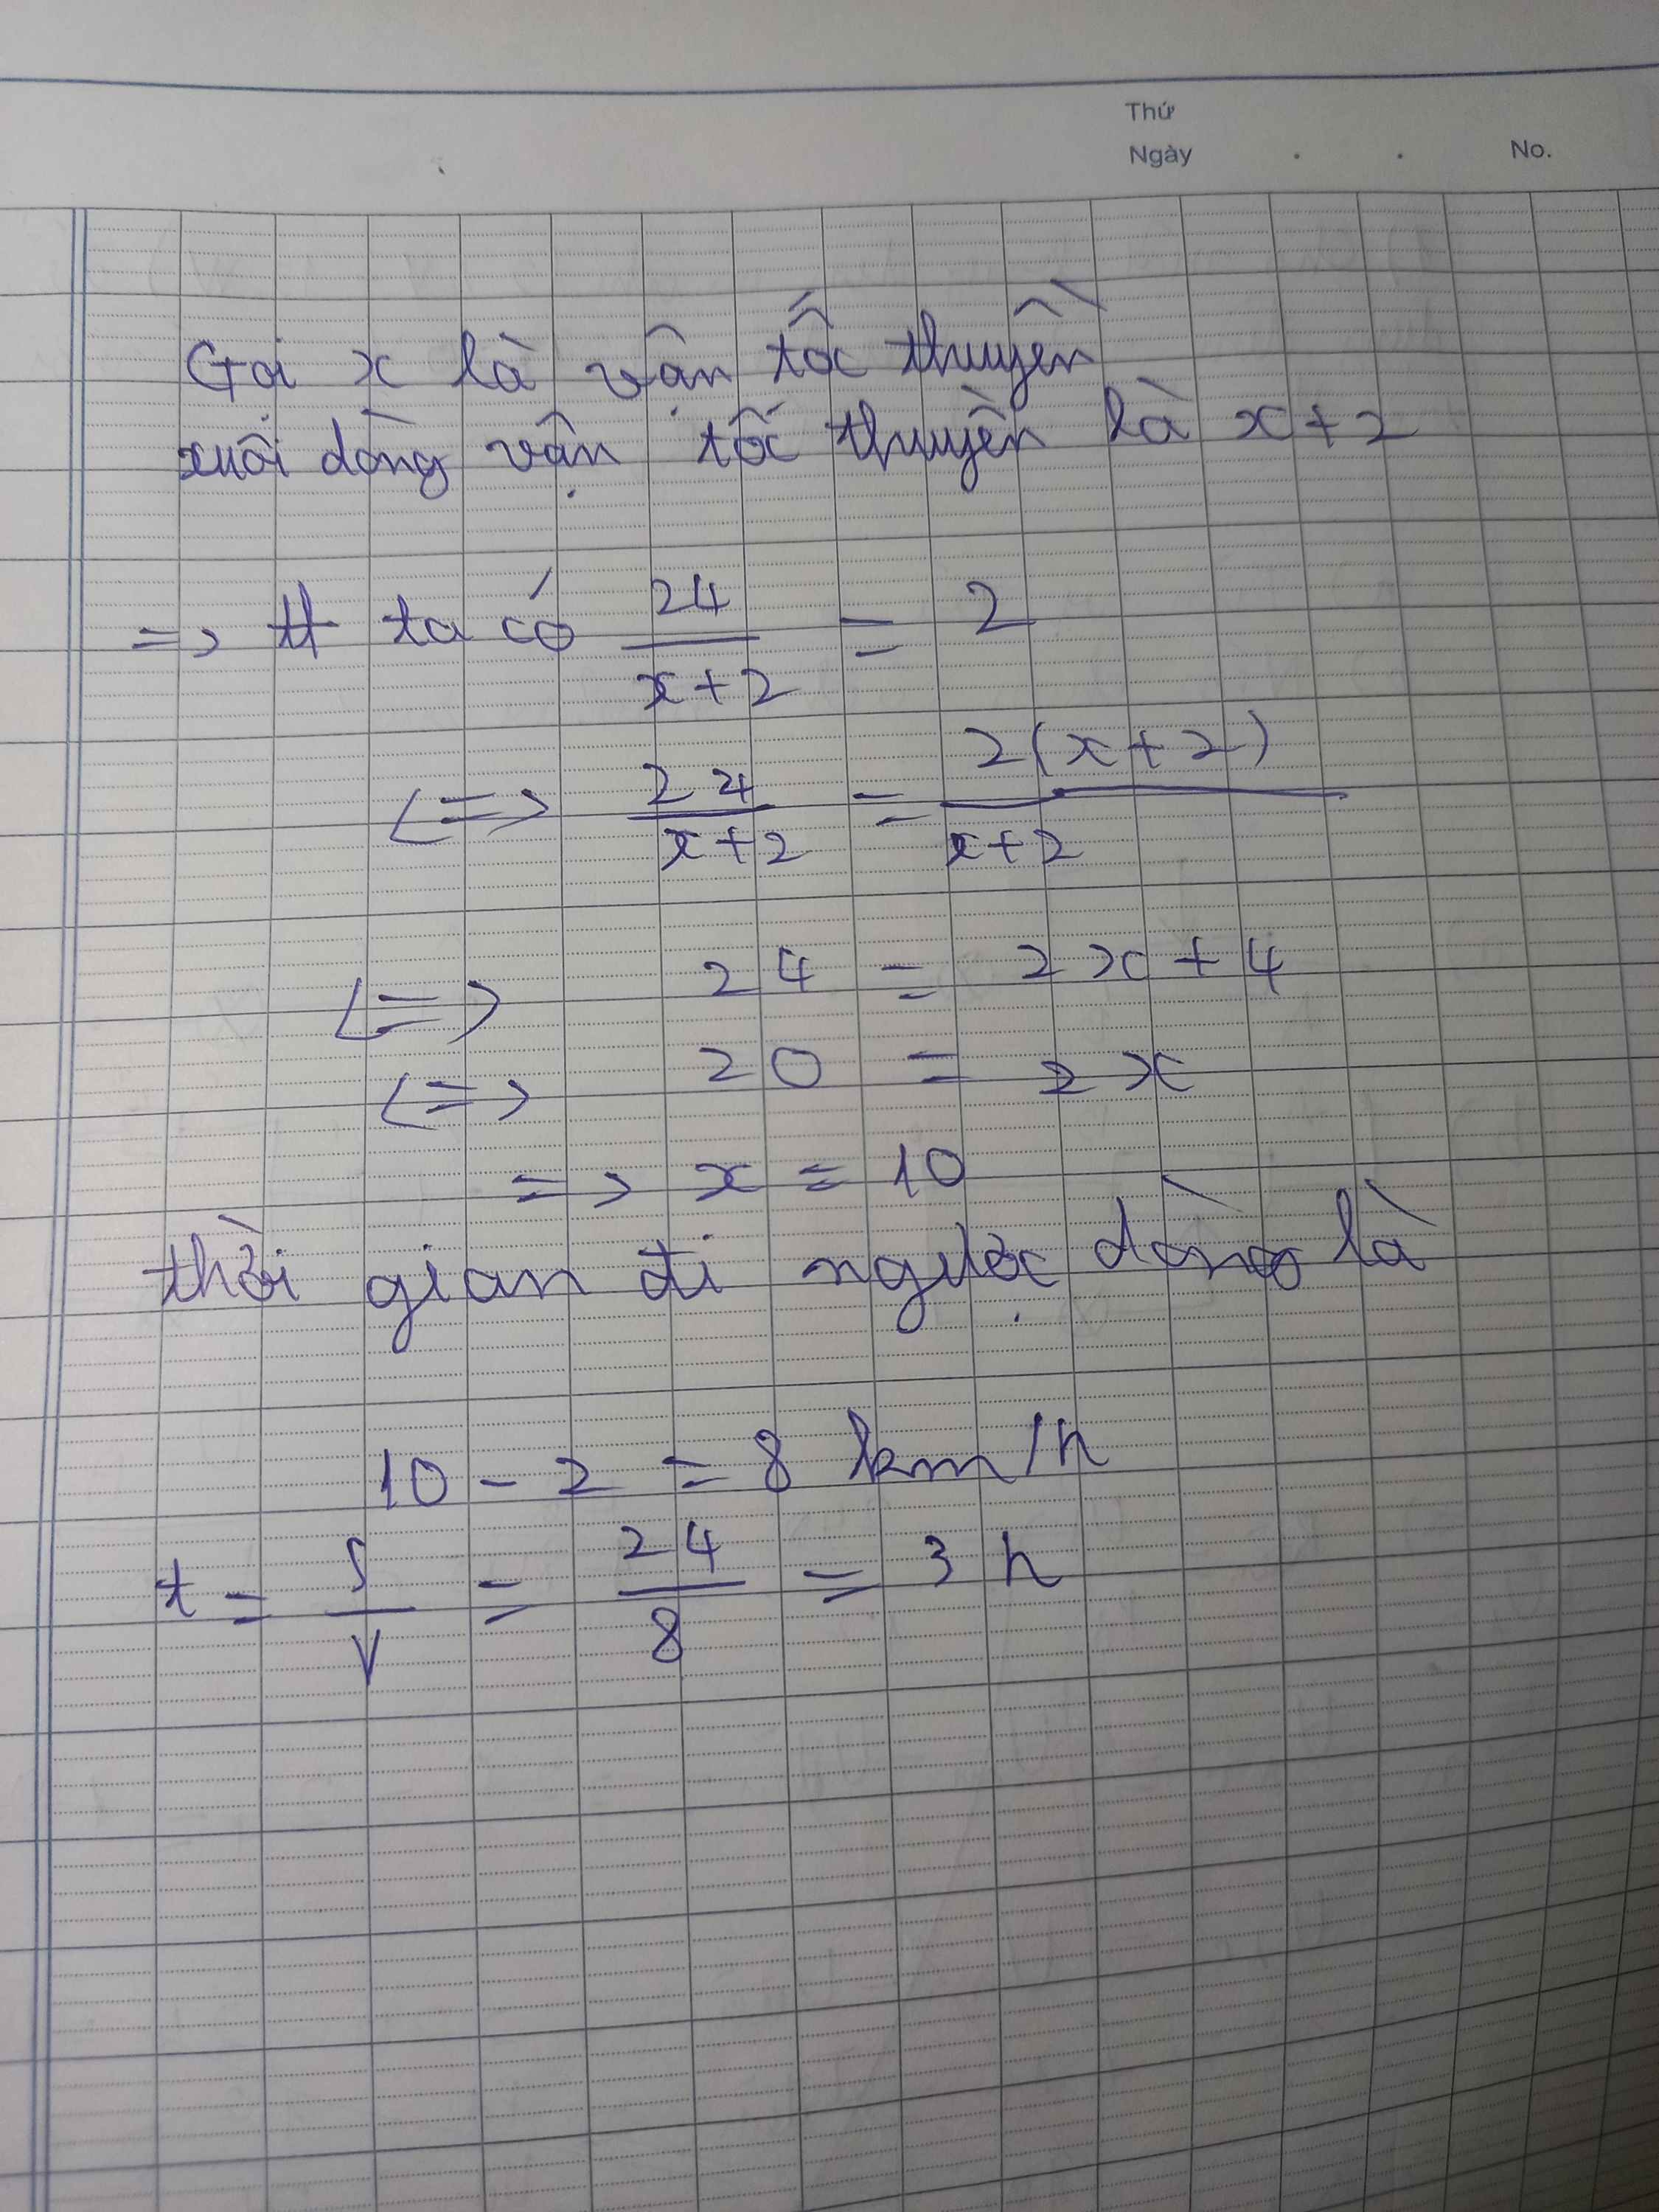 Thứ
Ngày . . No.
Gọi x là vận tốc thuyền
xuôi dòng vận tốc thuyền là x+2
=> tt ta có 24/(x+2) = 2
<=> 24/(x+2) = 2(x+2)/(x+2)
<=> 24 = 2x+4
<=> 20 = 2x
=> x = 10
thời gian đi ngược dòng là
10 - 2 = 8 km/h
t = S/V = 24/8 = 3 h